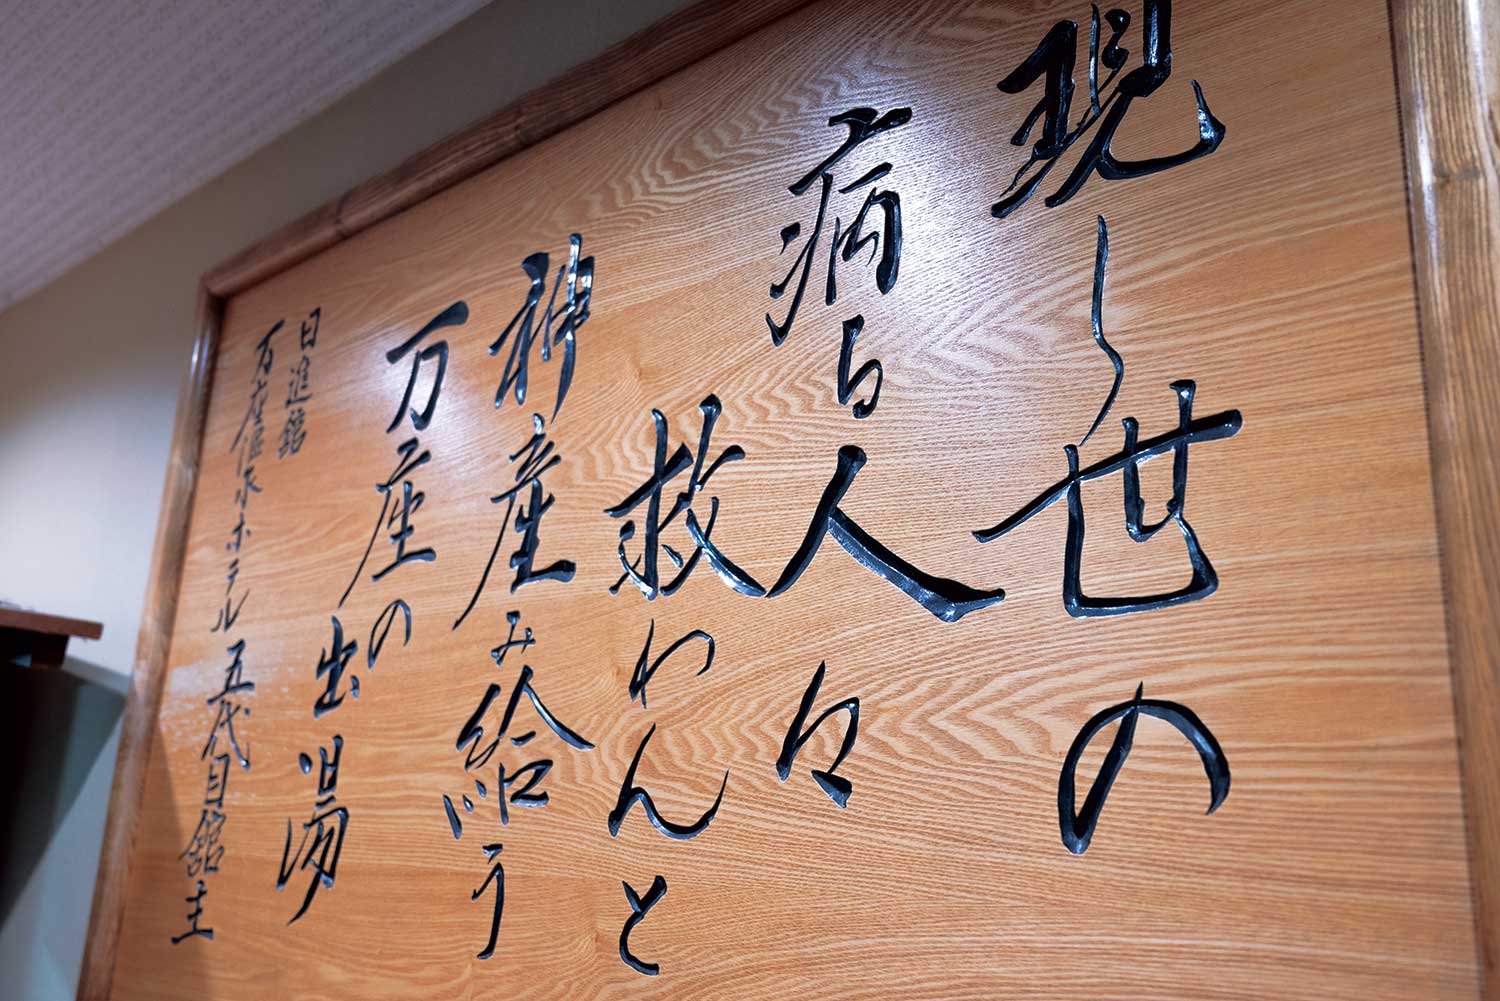 現し世の
病る人々
救わんと
神産み給う
万座の
出湯
日進館
万座温泉ホテル 五代目館主